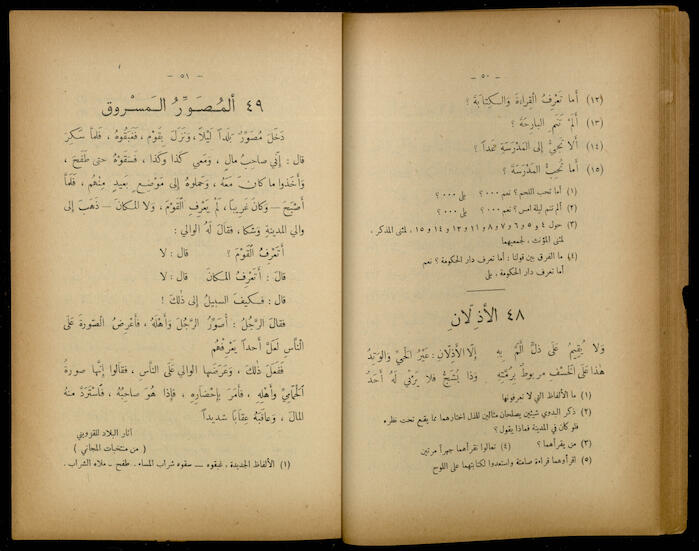 — ٥٠ —
(١٢) أَما تَعْرِفُ القِراءةَ وَالكِتابَةَ ؟
(١٣) أَلَمْ تَنَمِ البارحَةَ ؟
(١٤) أَلا تَجيُّ إِلى المَدْرَسَةِ غداً ؟
(١٥) أَما تُحِبُّ المَدْرَسَةَ ؟
(١) أما تحب اللحم ؟ نعم ٠٠٠ ؟ بلى ٠٠٠ ؟
(٢) ألم تنم ليلة امس ؟ نعم ٠٠٠ ؟ بلى ٠٠٠ ؟
(٣) حول ٤ و ٥ و ٦ و ٧ و ٨ و ١١ و ١٢ و ١٤ و ١٥ ، لمثنى المذكر ،
لمثنى المؤنث ، لجمعيهما
(٤) ما الفرق بين قولنا : أما تعرف دار الحكومة ؟ نعم
أما تعرف دار الحكومة ، بلى
٤٨ الأَذِلّان
وَلا يُقيمُ عَلى ذُلٍّ أَلَمَّ بِهِ إِلّا الأَذِلّانِ : عَيْرُ الحَيِّ وَالوَتِدُ
هٰذا عَلى الخَسْفِ مربوطٌ بِرُمَّتِهِ وَذا يُشَجُّ فَلا يَرْثي لَهُ أَحَدُ
(١) ما الألفاظ التي لا تعرفونها
(٢) ذكر البدوي شيئين يصلحان مثالين للذل اختارهما مما يقع تحت نظره
فلو كان في المدينة فماذا يقول ؟
(٣) من يقرأهما ؟ (٤) تعالوا نقرأهما جهراً مرتين
(٥) اقرأوهما قراءة صامتة واستعدوا لكتابتهما على اللوح
— ٥١ —
٤٩ المُصَوِّرُ المَسْروق
دَخَلَ مُصَوِّرٌ بلداً لَيْلاً ، وَنَزَلَ بِقَوْمٍ ، فَغَبَقُوهُ ، فَلَمّا سَكِرَ
قالَ : إِنّي صاحِبُ مالٍ ، وَمَعي كَذا وَكَذا ، فَسَقَوْهُ حتى طَفَحَ ،
وَأَخَذوا ما كانَ مَعَهُ ، وَحَملوهُ إِلى مَوْضِعٍ بَعيدٍ مِنْهُم ، فَلَمّا
أَصْبَحَ — وَكانَ غَريباً ، لَمْ يَعْرِفِ القَوْمَ ، وَلا المكانَ — ذَهَبَ إِلى
والي المدينةِ وَشَكا ، فَقالَ لَهُ الوالي :
أَتَعْرِفُ القَوْمَ ؟ قالَ : لا
قالَ : أَتَعْرِفُ المكانَ قالَ : لا
قالَ : فَكيفَ السبيلُ إِلى ذٰلِكَ !
فَقالَ الرَّجُلُ : أُصَوِّرُ الرَّجُلَ وَأَهْلَهُ ، فَأَعْرِضُ الصّورَةَ عَلى
النّاسِ لَعَلَّ أَحداً يَعْرِفُهُمْ
فَفَعَلَ ذٰلِكَ ، وَعَرَضَها الوالي عَلى النّاسِ ، فَقالوا إنَّها صورةُ
الحَمّامِيِّ وَأَهْلِهِ ، فَأَمَرَ بِإِحْضارِهِ ، فَإِذا هُوَ صاحِبُهُ ، فَاسْتَرَدَّ مِنْهُ
المالَ ، وَعاقَبَهُ عِقاباً شديداً
آثار البلاد للقزويني
( من منتخبات المجاني )
(١) الألفاظ الجديدة ، غبقوه — سقوه شراب المساء . طفح — ملأه الشراب .